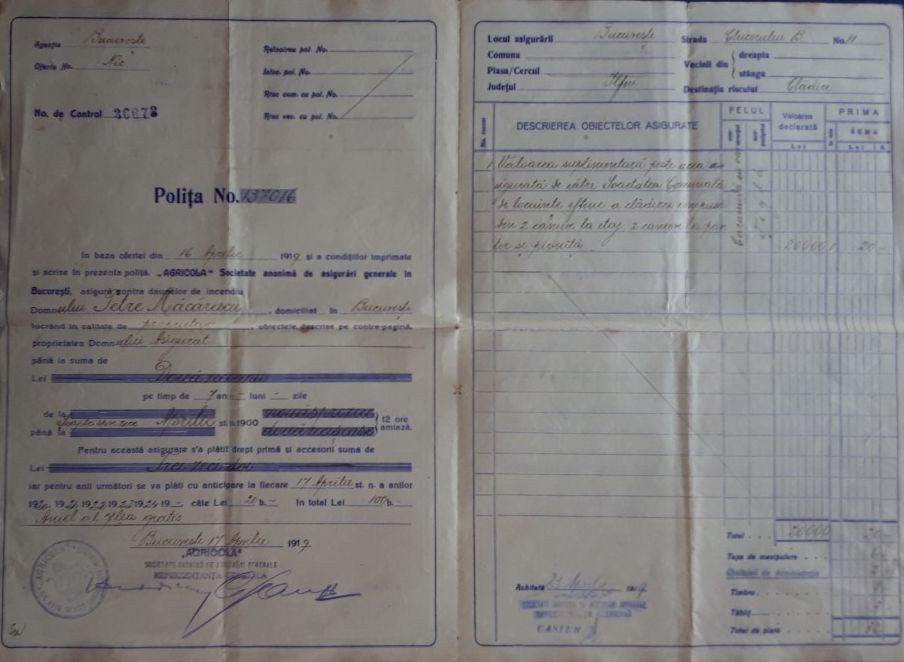 Agenția București
Oferta No. Nic
Reînoirea pol. No.
Înloc. pol. No.
Risc com. cu pol. No.
Risc vec. cu pol. No.
No. de Control 20673
Polița No. 137016
În baza ofertei din 16 Aprilie 1919 și a condițiilor imprimate
și scrise în prezenta poliță, „AGRICOLA" Societate anonimă de asigurări generale în
București, asigură contra daunelor de incendiu
Domnului Petre Măcărescu, domiciliat în București
lucrând în calitate de proprietar, obiectele descrise pe contra-pagină,
proprietatea Domnului Asigurat
până la suma de
Lei
pe timp de 7 ani – luni – zile
de la Șaptesprezece Aprilie st. n. 1900 nouăsprezece 12 ore
până la amiază.
Pentru această asigurare s'a plătit drept primă și accesorii suma de
Lei
iar pentru anii următori se va plăti cu anticipare la fiecare 17 Aprilie st. n. a anilor
1920, 1921, 1922, 1923, 1924, 19 – câte Lei 20 b. – În total Lei 100 b. –
Anul al 7lea gratis
București 17 Aprilie 1919
„AGRICOLA"
SOCIETATE ANONIMĂ DE ASIGURĂRI GENERALE
REPREZENTANȚA GENERALĂ
Locul asigurării București Strada Clucerului B. No. 11
Comuna
Plasa/Cercul
Județul Ilfov
Vecinii din dreapta
stânga
Destinația riscului Clădire
DESCRIEREA OBIECTELOR ASIGURATE
FELUL
Valoarea declarată
Lei
PRIMA
SUMA
Lei b.
1 Valoarea suplimentară peste acea a-
sigurată de către Societatea Comunală
de locuințe eftine a clădirei compusă
din 2 camere la etaj, 2 camere la par-
ter și pivniță
20000 1 20 –
Total 20000 20
Taxa de manipulare
Timbru
Tăbliț
Total de plată
Achitată 23 1919
CASIER